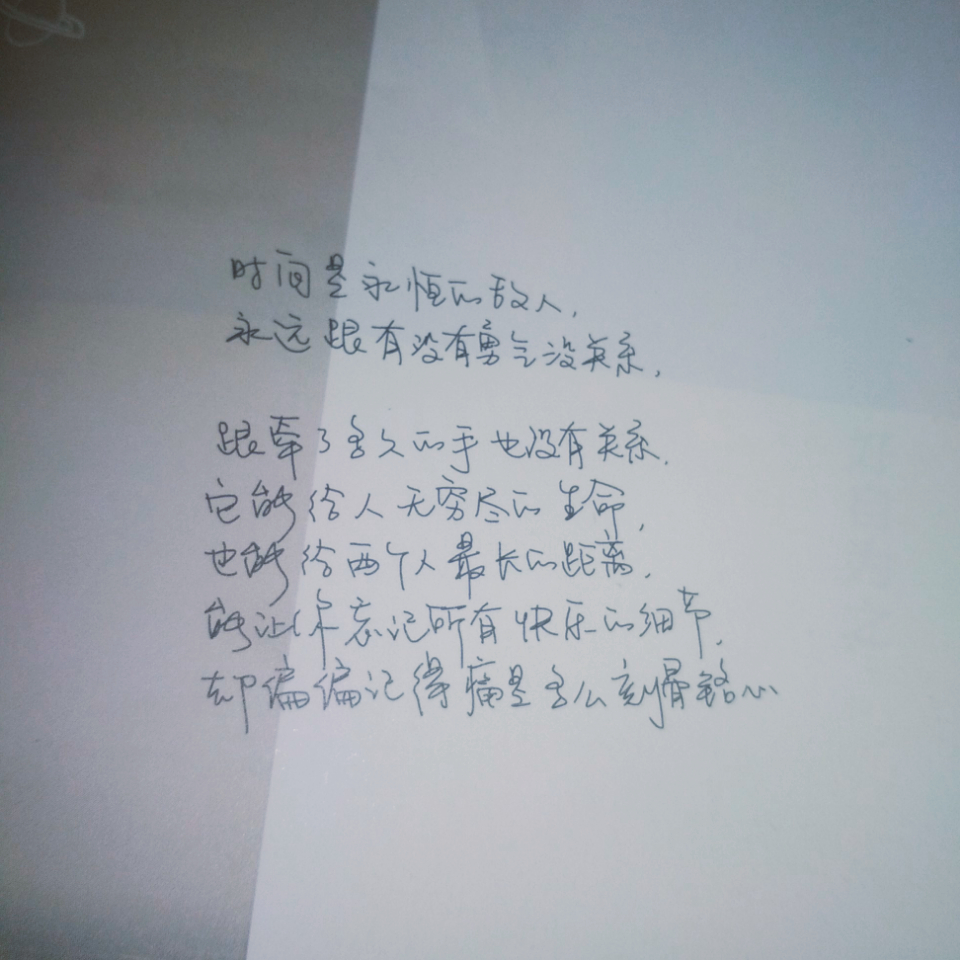 时间是永恒的敌人,
永远跟有没有勇气没关系,
跟牵了多久的手也没有关系.
它能给人无穷尽的生命,
也能给两个人最长的距离.
能让你忘记所有快乐的细节,
却偏偏记得痛是多么刻骨铭心